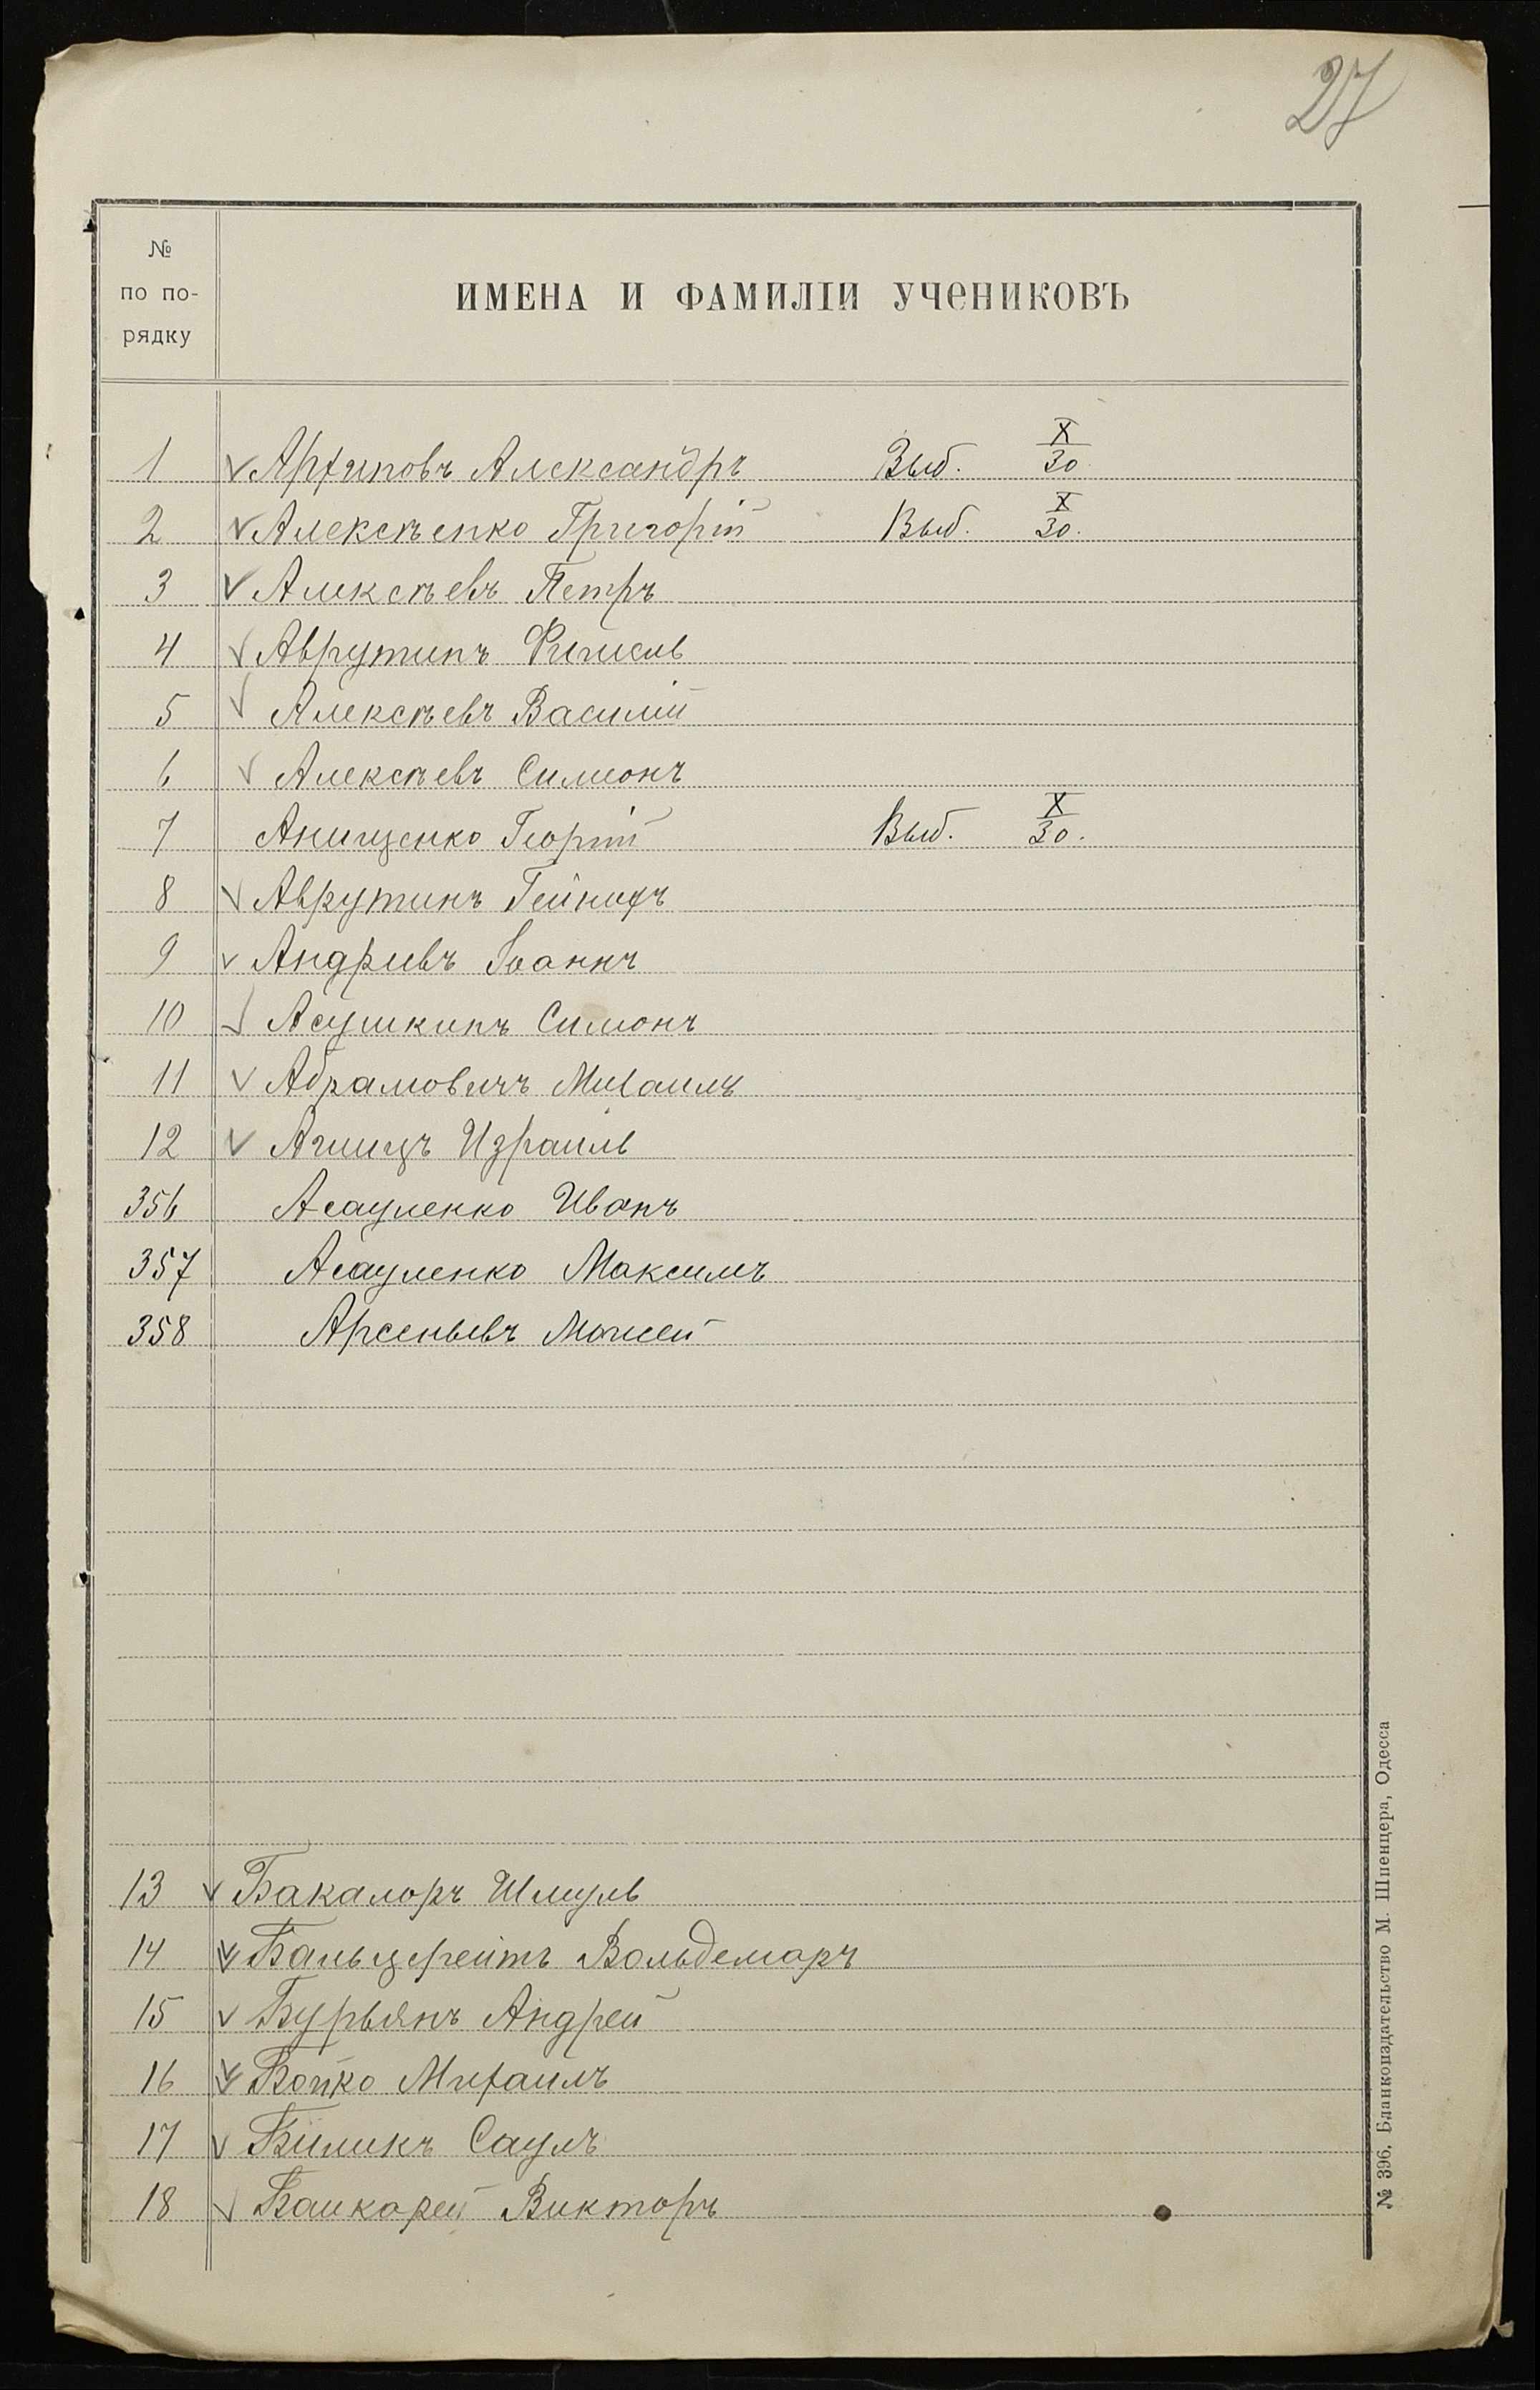 27
№
по по-
рядку
ИМЕНА И ФАМИЛІИ УЧЕНИКОВЪ
1 Архиповъ Александръ Выб. X/30.
2 Алексѣенко Григорій Выб. X/30.
3 Алексѣевъ Петръ
4 Аврутинъ
5 Алексѣевъ Василій
6 Алексѣевъ Симеонъ
7 Анищенко Георгій Выб. X/30.
8 Аврутинъ
9 Андріевъ Іоаннъ
10 Асушкинъ Симонъ
11 Абрамовичъ Михаилъ
12 Израиль
356 Асауленко Иванъ
357 Асауленко Максимъ
358 Арсеньевъ Моисей
13 Бакалоръ Шмуль
14 Вольдемаръ
15 Бурьянъ Андрей
16 Бойко Михаилъ
17 Биликъ Саулъ
18 Викторъ
№ 396. Бланкоиздательство М. Шпенцера, Одесса